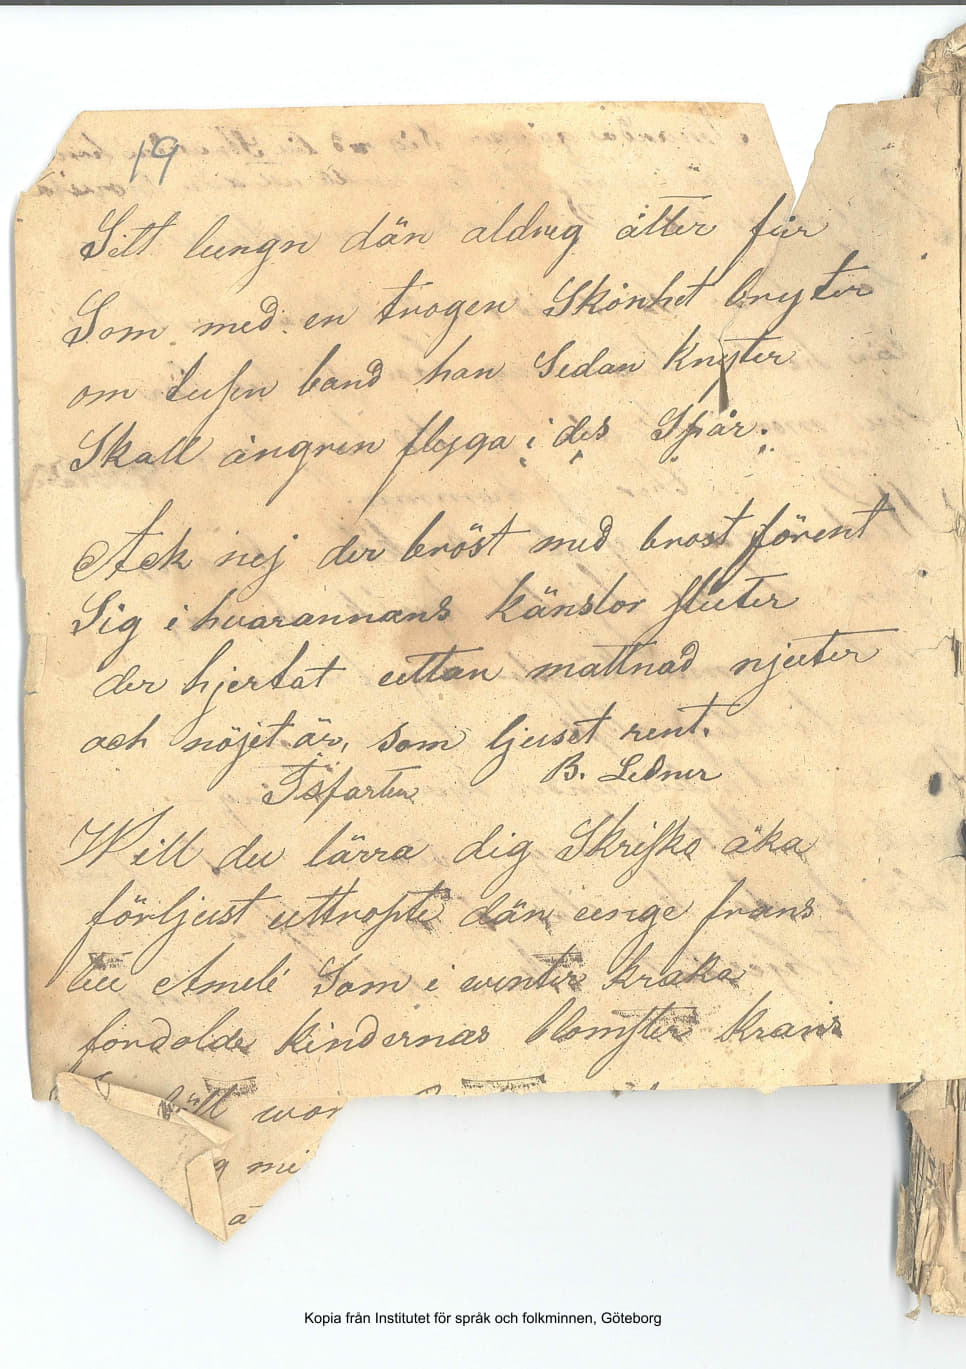 19
Sitt lungn dän aldrig åtter får
Som med en trogen Skönhet bryter
om tusen band han Sedan Knyter
Skall ångren flyga i des Spår.
Ack nej der bröst med brost förent
Sig i hvarannans känslor sluter
der hjertat uttan mattnad njuter
och nöjet är, som ljuset rent.
B. Lidner
Isfarten
Will du lärra dig Skrisko åka
förljust uttropte dän unge frans
till Amelí Som i winter kråka
fördolde kindernas blomster krans
wor
g mi
Kopia från Institutet för språk och folkminnen, Göteborg